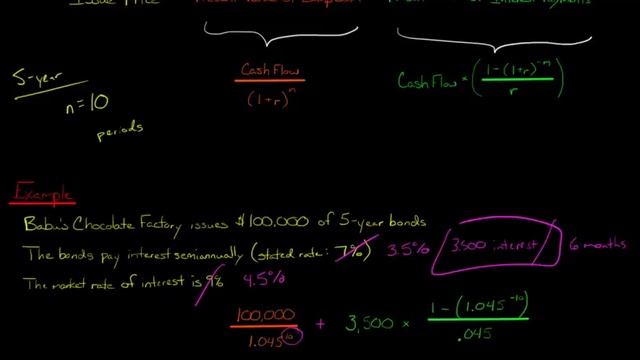 Issue Price
Interest Payments
5-year
n=10
periods
Cash Flow
(1+r)^n
Cash Flow × (1-(1+r)^-n / r)
Example
Babu's Chocolate Factory issues $100,000 of 5-year bonds
The bonds pay interest semiannually (stated rate: 7%) 3.5% 3,500 interest / 6 months
The market rate of interest is 9% 4.5%
100,000 / 1.045^10 + 3,500 × 1-(1.045^-10) / .045